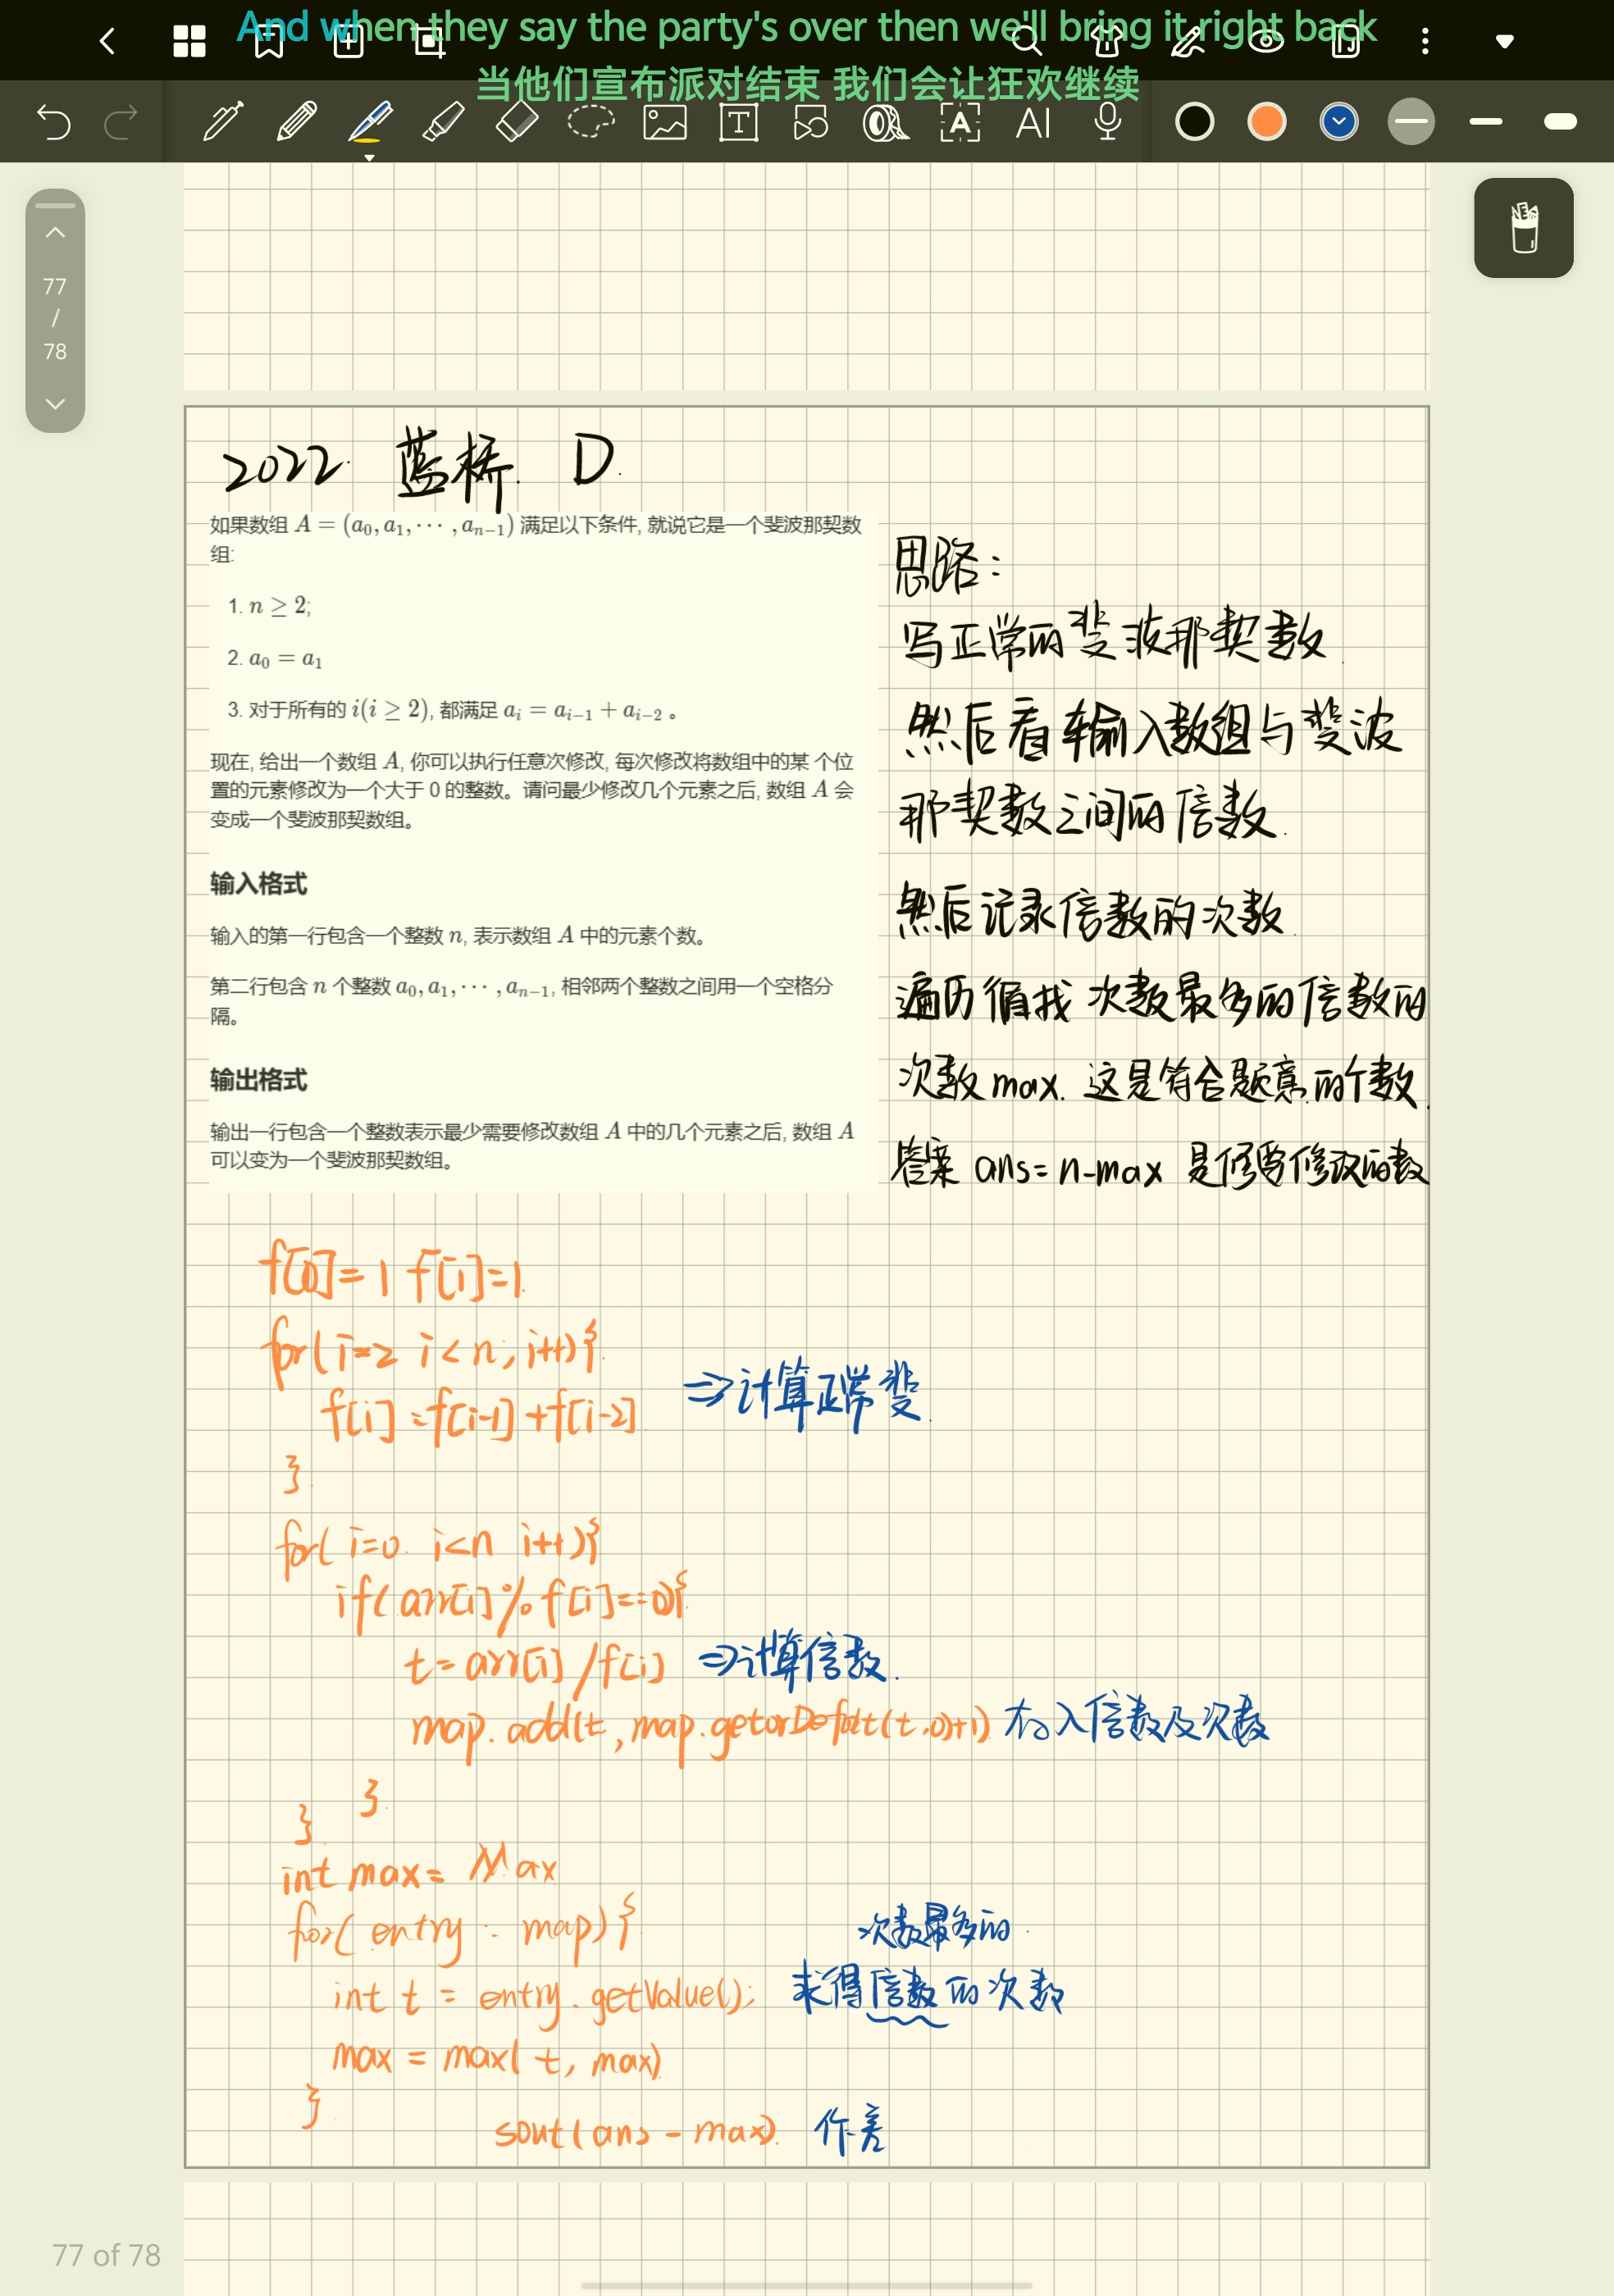 And when they say the party's over then we'll bring it right back
当他们宣布派对结束 我们会让狂欢继续
T
A
AI
77
/
78
2022 蓝桥 D.
如果数组 A = (a₀, a₁, ⋯ , aₙ₋₁) 满足以下条件, 就说它是一个斐波那契数
组:
1. n ≥ 2;
2. a₀ = a₁
3. 对于所有的 i(i ≥ 2), 都满足 aᵢ = aᵢ₋₁ + aᵢ₋₂ 。
现在, 给出一个数组 A, 你可以执行任意次修改, 每次修改将数组中的某 个位
置的元素修改为一个大于 0 的整数。请问最少修改几个元素之后, 数组 A 会
变成一个斐波那契数组。
输入格式
输入的第一行包含一个整数 n, 表示数组 A 中的元素个数。
第二行包含 n 个整数 a₀, a₁, ⋯ , aₙ₋₁, 相邻两个整数之间用一个空格分
隔。
输出格式
输出一行包含一个整数表示最少需要修改数组 A 中的几个元素之后, 数组 A
可以变为一个斐波那契数组。
思路:
写正常的斐波那契数.
然后看输入数组与斐波
那契数之间的倍数.
然后记录倍数的次数.
遍历循找 次数最多的倍数的
次数max. 这是符合题意的个数.
答案 ans=n-max 是修改的数
f[0]=1 f[1]=1.
for(i=2 i<n, i++){
f[i]=f[i-1]+f[i-2]
⇒计算正常斐.
}.
for(i=0. i<n i++){
if(arr[i]%f[i]==0){
t=arr[i]/f[i] ⇒计算倍数.
map.add(t,map.getorDefalt(t,0)+1) 存入倍数及次数
}.
}.
int max= Max
for(entry : map){
次数最多的.
int t = entry.getValue(); 求得倍数的次数
max = max(t, max)
}
sout(ans-max). 作差
77 of 78